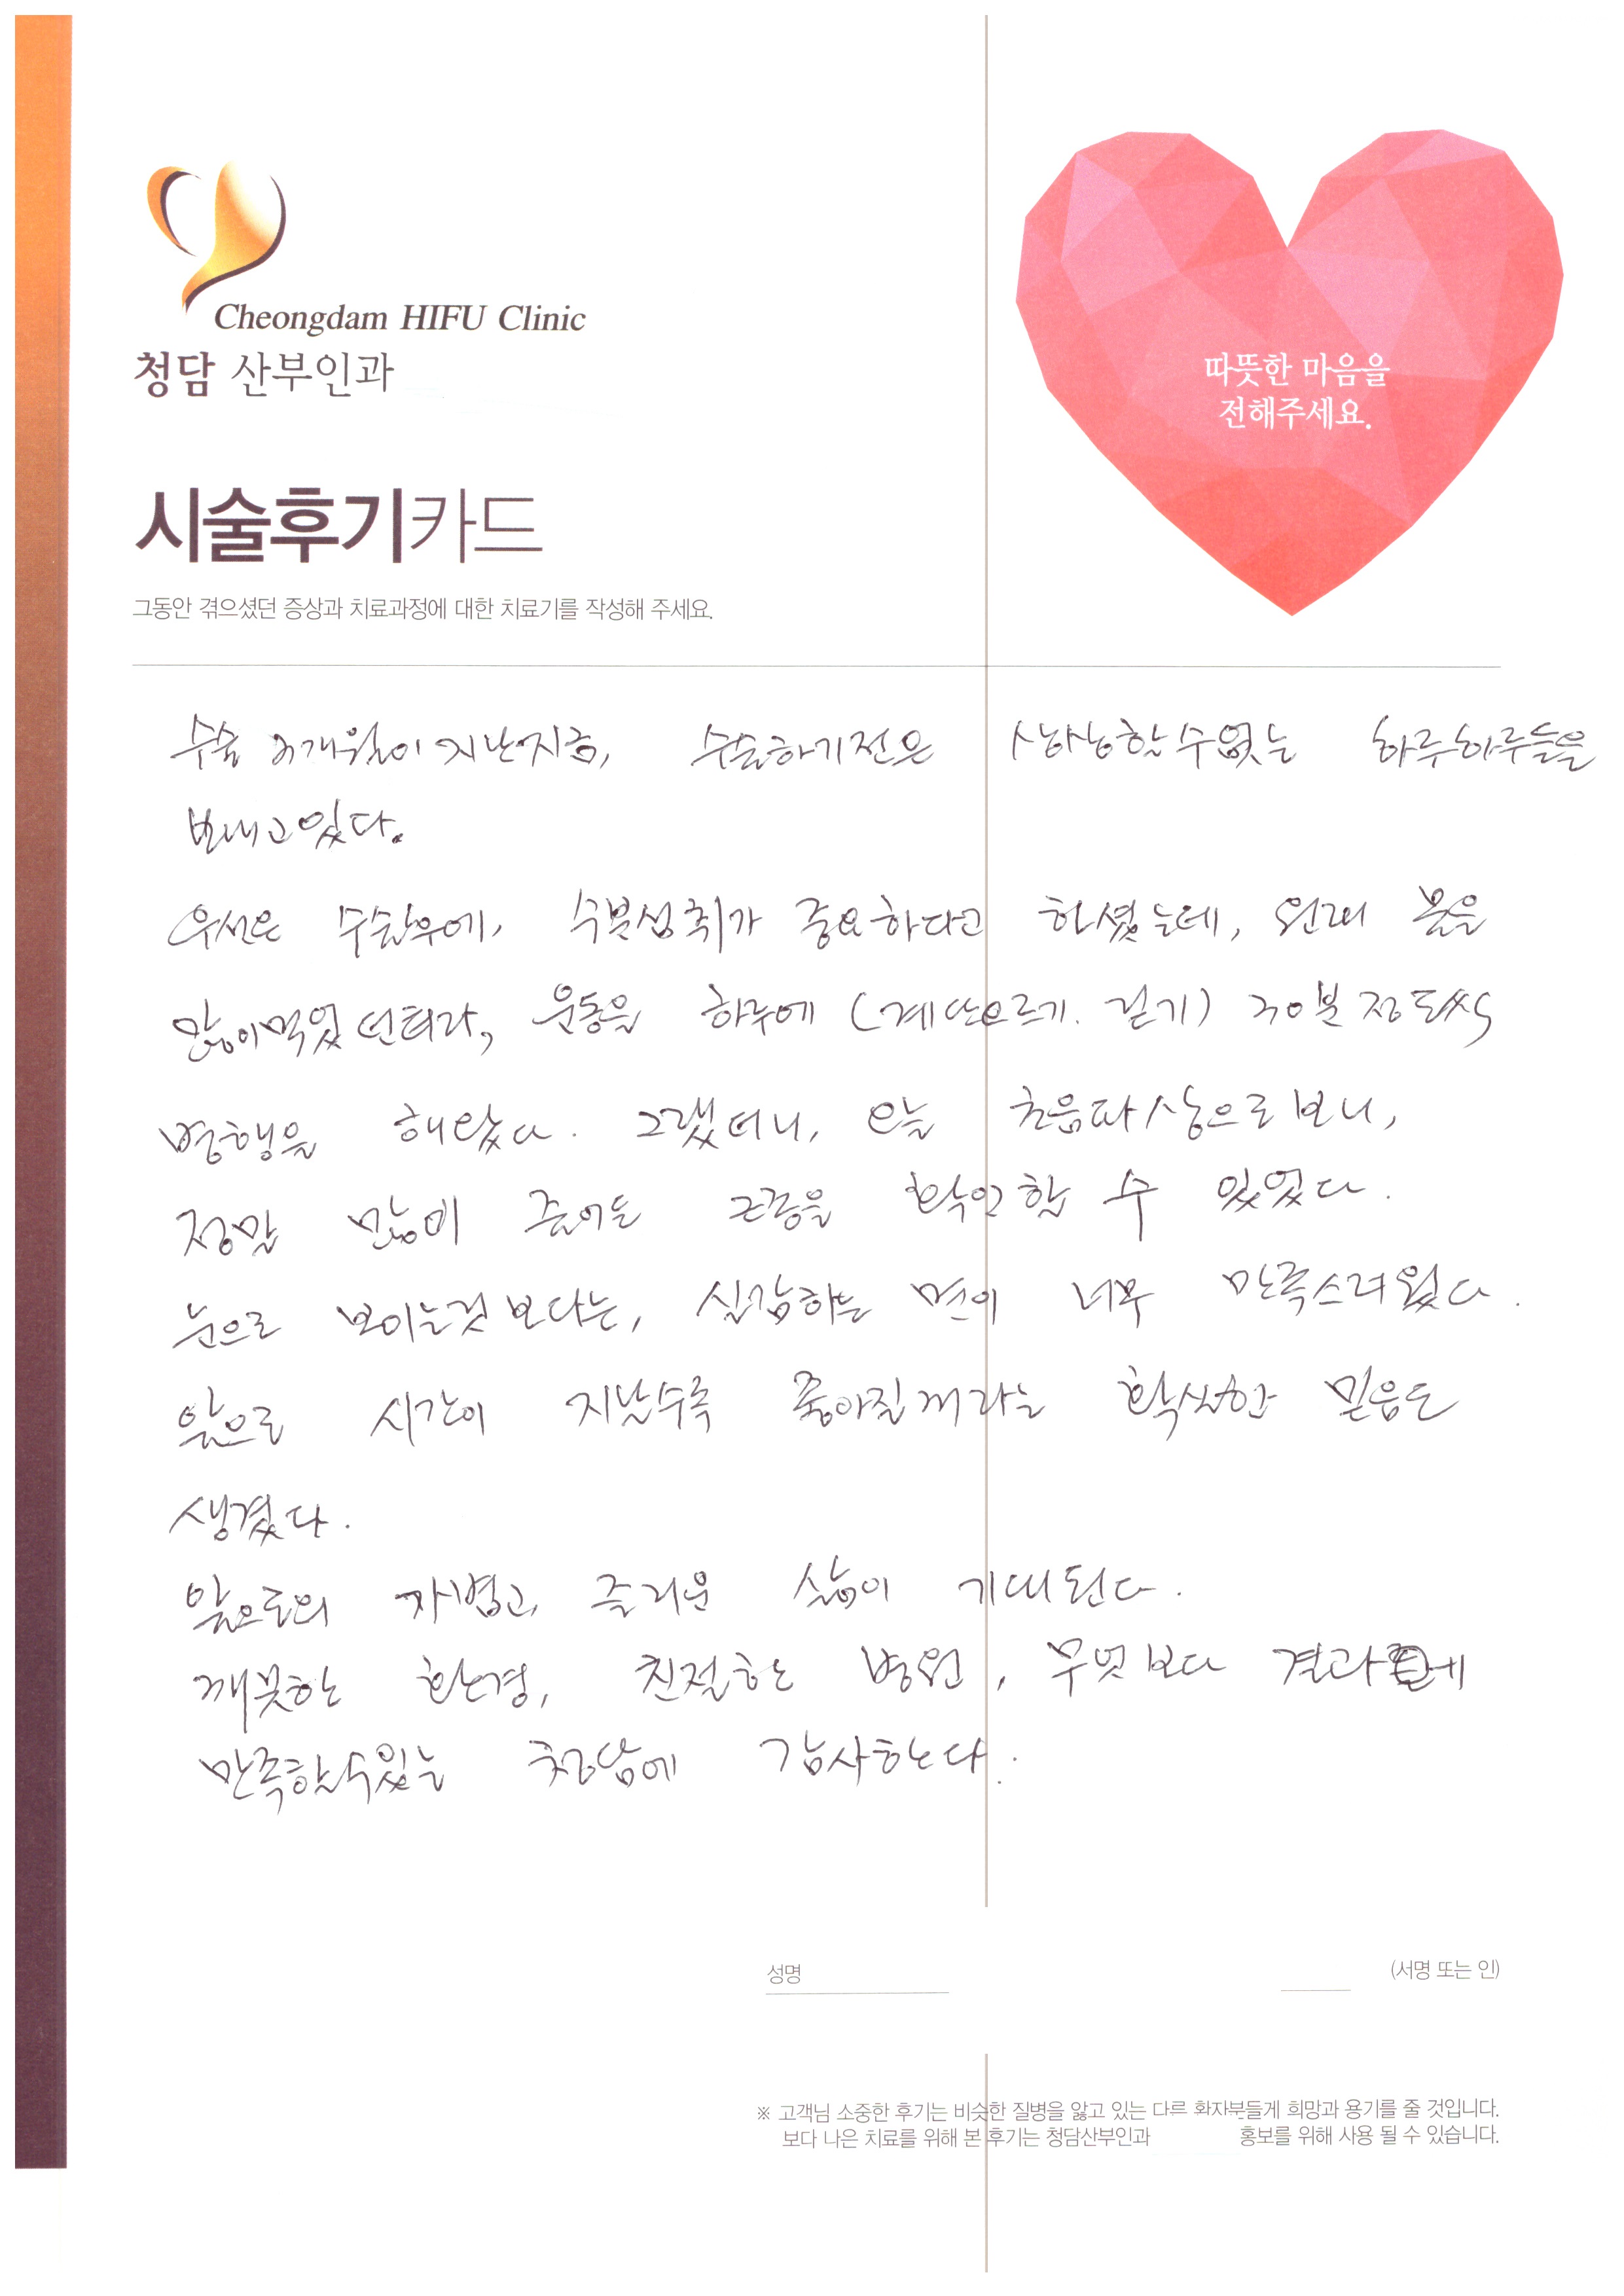 Cheongdam HIFU Clinic
청담 산부인과
따뜻한 마음을
전해주세요.
시술후기카드
그동안 겪으셨던 증상과 치료과정에 대한 치료기를 작성해 주세요.
수술 개월이 지난지금, 수술하기전은 상상할수없는 하루하루들을
보내고있다.
우선은 수술후에, 수분섭취가 중요하다고 하셨는데, 원래 물을
많이먹었던터라, 운동을 하루에 (계단오르기. 걷기) 30분정도씩
병행을 해왔다. 그랬더니, 오늘 초음파상으로보니,
정말 많이 줄어든 근종을 확인할 수 있었다.
눈으로 보이는것보다는, 실감하는 면이 너무 만족스러웠다.
앞으로 시간이 지날수록 좋아질꺼라는 확실한 믿음도
생겼다.
앞으로의 가볍고, 즐거운 삶이 기대된다.
깨끗한 환경, 친절한 병원, 무엇보다 결과에
만족할수있는 청담에 감사한다.
성명
(서명 또는 인)
※ 고객님 소중한 후기는 비슷한 질병을 앓고 있는 다른 환자분들게 희망과 용기를 줄 것입니다.
보다 나은 치료를 위해 본 후기는 청담산부인과 홍보를 위해 사용 될 수 있습니다.